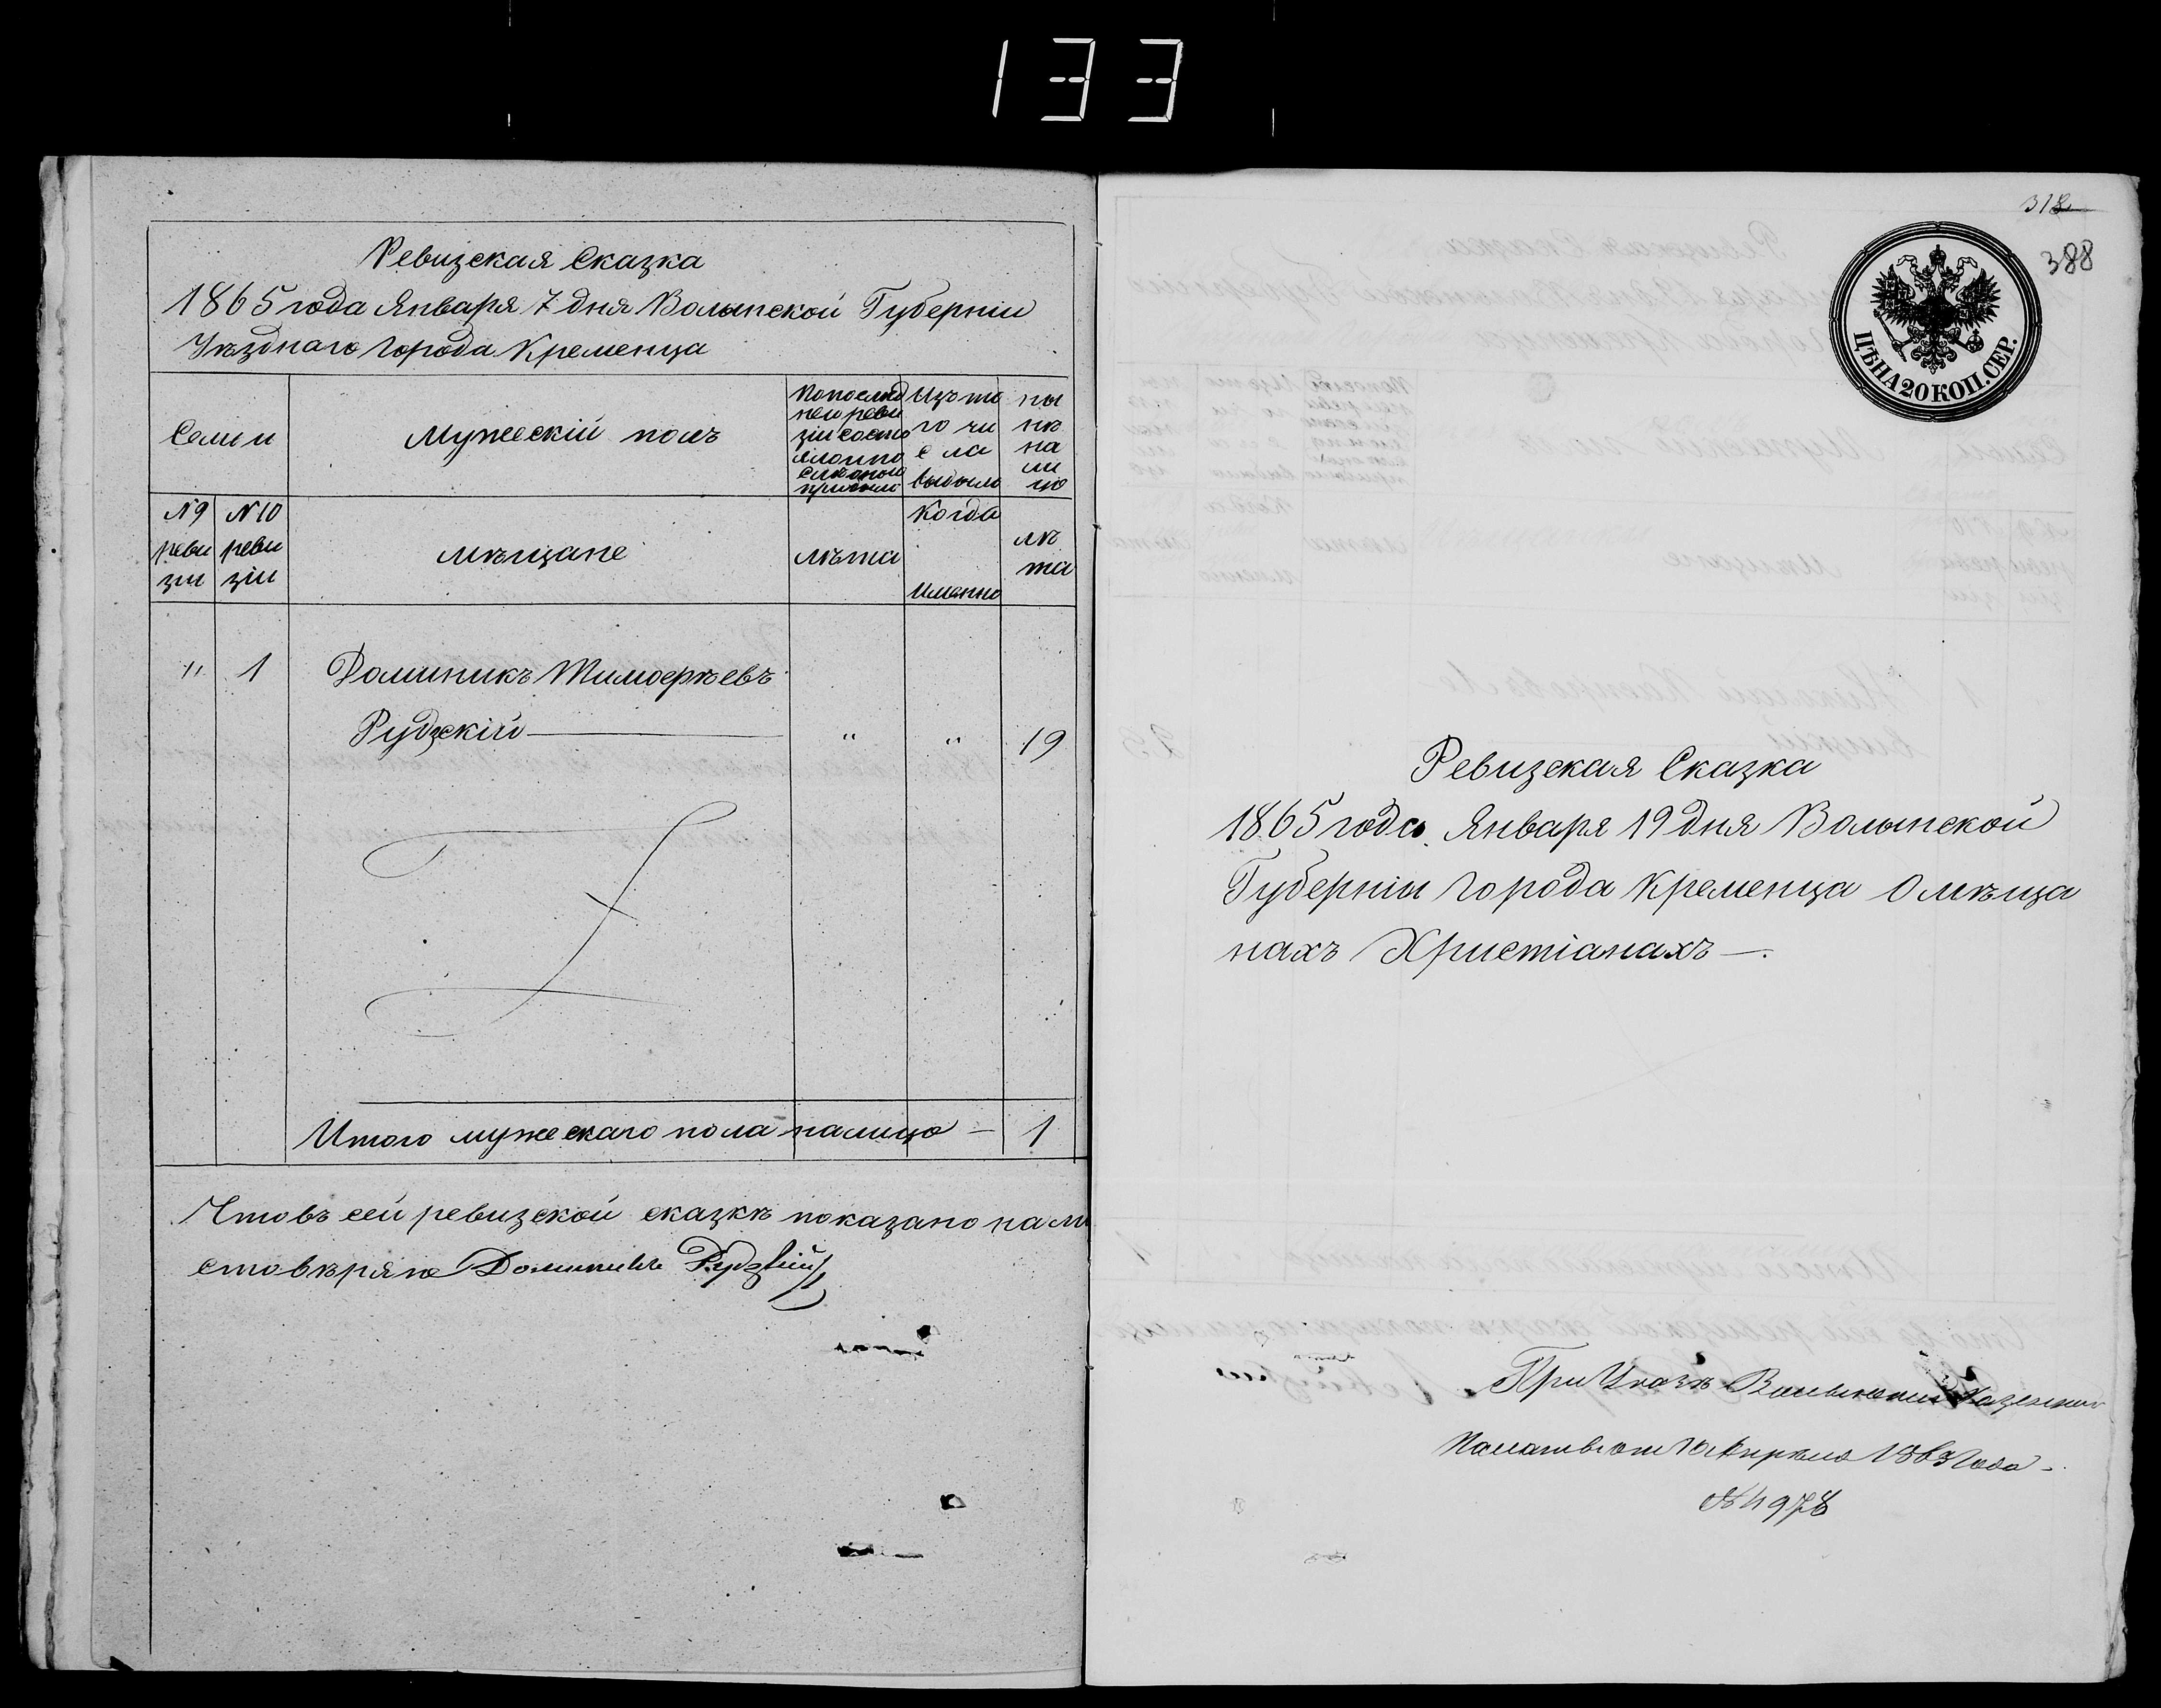 133
Ревизская Сказка
1865 года Января 7 дня Волынской Губерніи
Уѣзднаго города Кременца
Семьи
Мужескій полъ
По послѣд
ней реви
зіи состо
яло и по
слѣ оной
прибыло
Изъ то
го чи
сла
выбыло
ны
нѣ
на
ли
цо
№9
реви
зіи
№10
реви
зіи
мѣщане
лѣта
Когда
Именно
лѣ
та
" 1 Доминикъ Тимоѳѣевъ
Рудзскій — " " 19
Итого мужескаго пола налицо — 1
Что въ сей ревизской сказкѣ показано на ли
сто вѣрно Доминикъ Рудзкий
318
388
ЦѢНА 20 КОП. СЕР.
Ревизская Сказка
1865 года Января 19 дня Волынской
Губерніи города Кременца О мѣща
нахъ Христіанахъ —.
При Указѣ Волынской Казенной
Палаты от Апрѣля 1863 года -
№ 4978